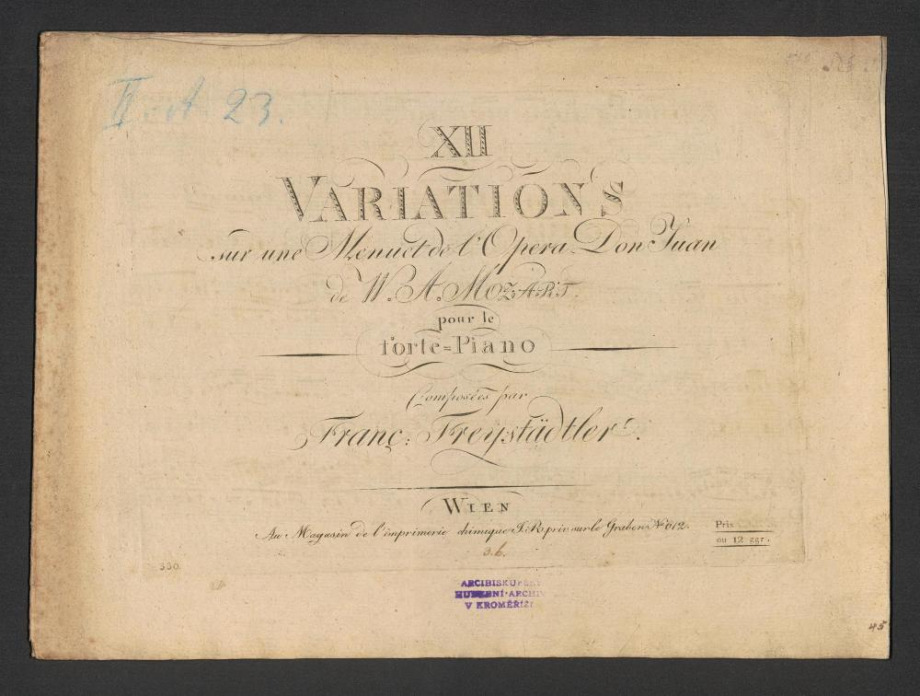 II A 23.
XII
VARIATIONS
sur une Menuet de l'Opera Don Juan
de W. A. MOZART.
pour le
Forte=Piano
Composées par
Franç: Freystädtler.
WIEN
Au Magasin de l'imprimerie chimique I. R. priv: sur le Graben Nº 612.
Prix
ou 12 ggr.
330
ARCIBISKUPSKÝ
HUDEBNÍ ARCHIV
V KROMĚŘÍŽI
45